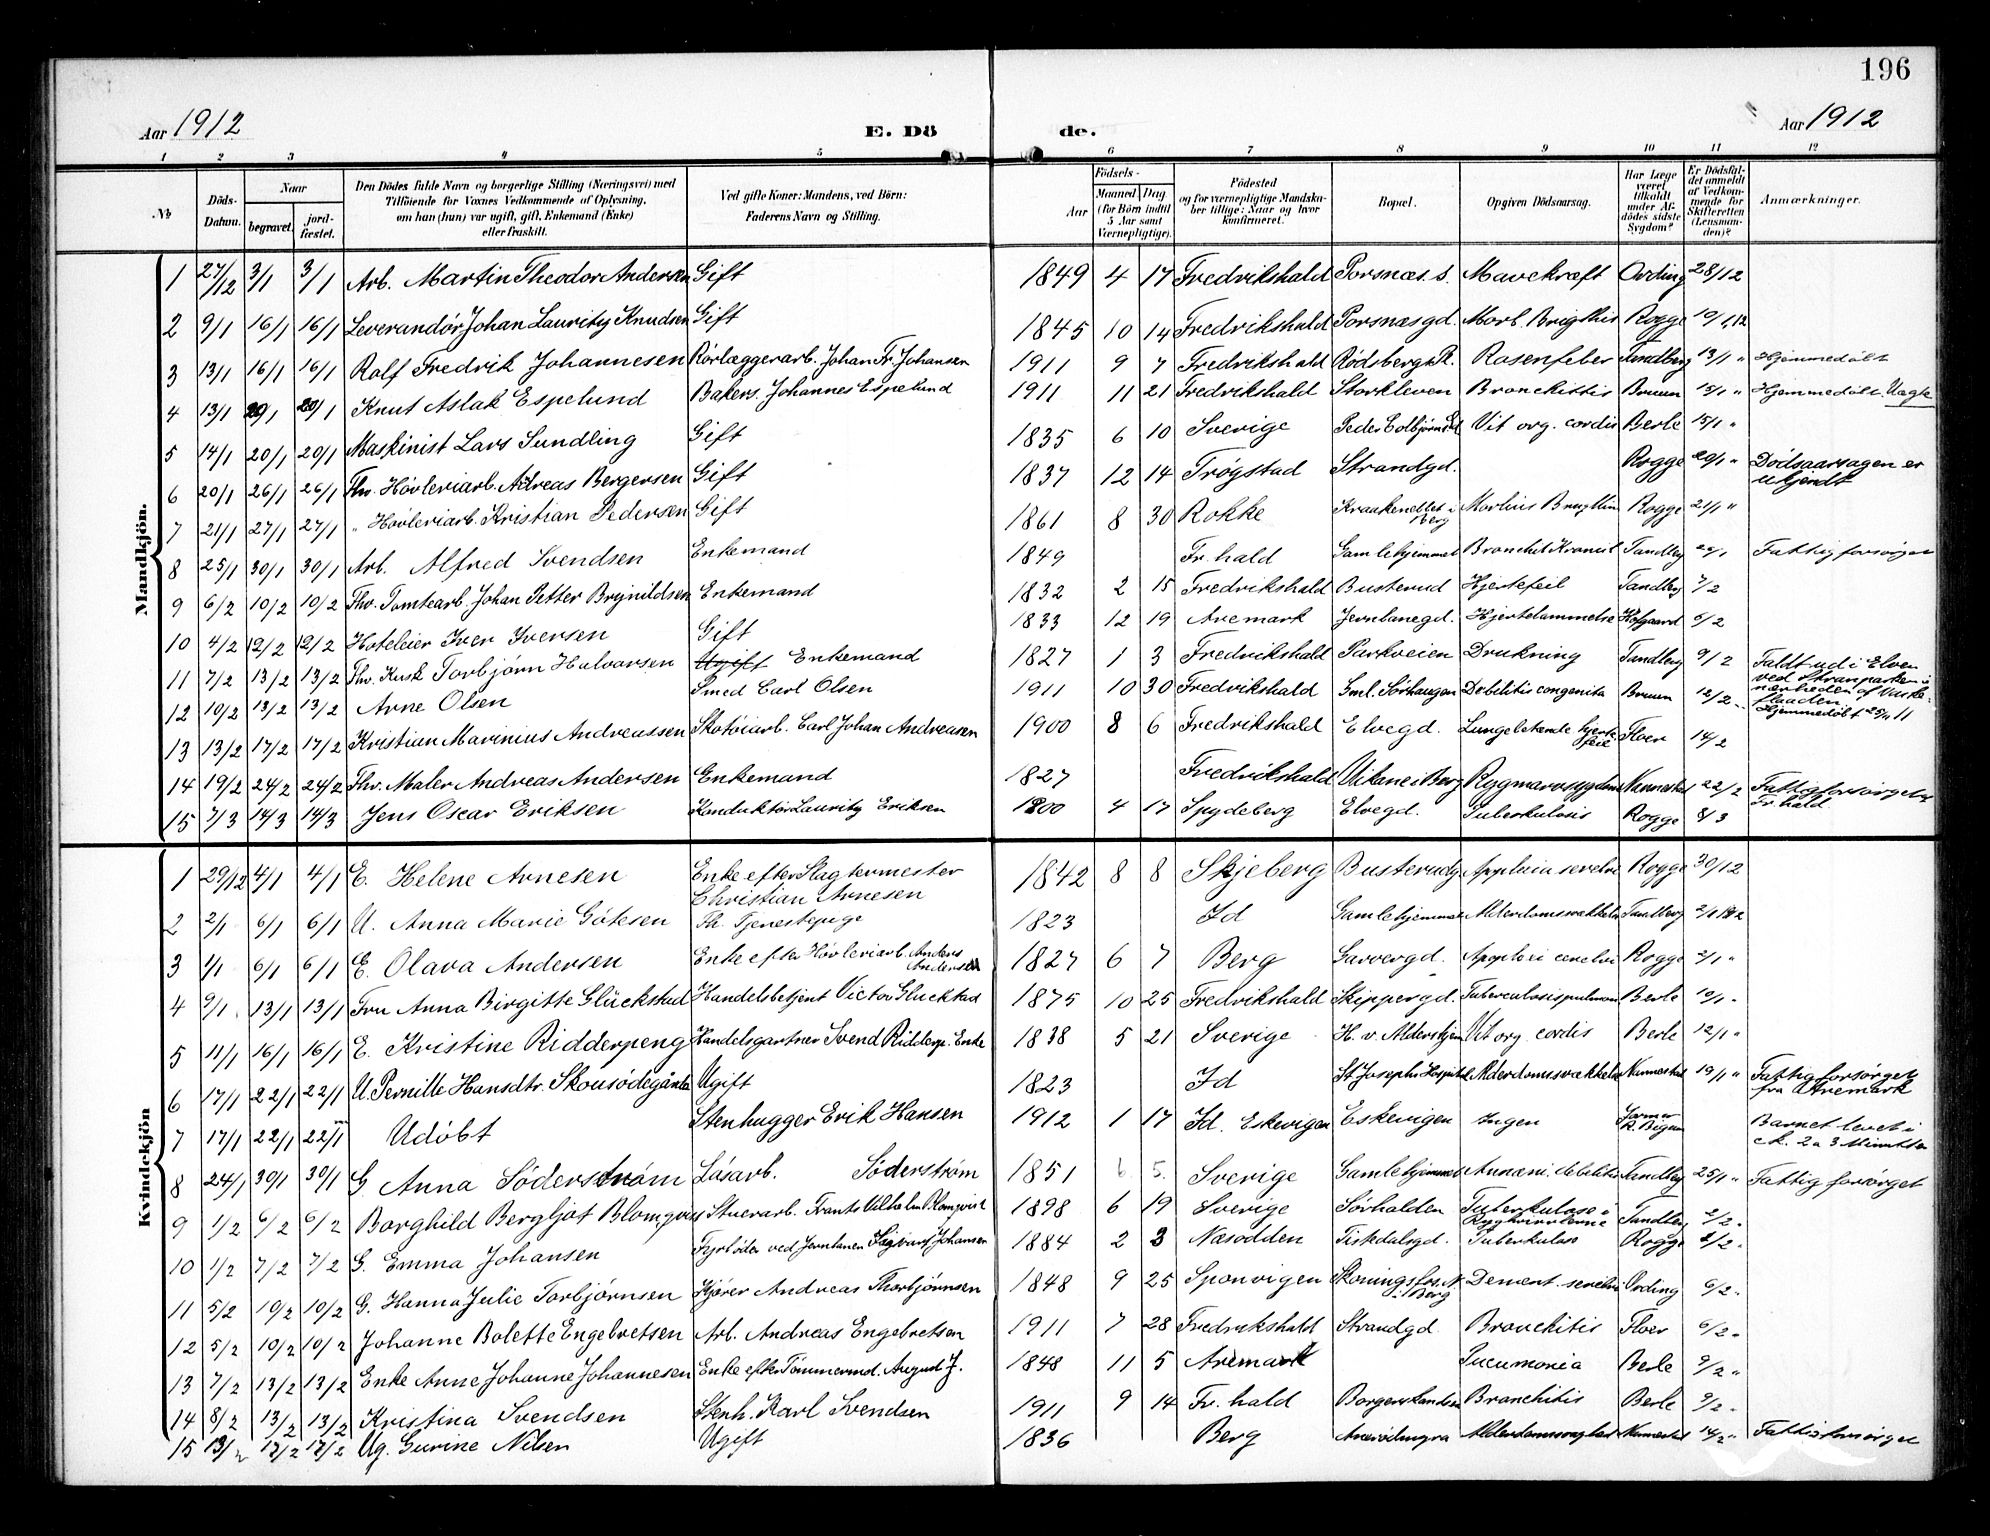 196
Aar 1912
E. Dö
de.
Aar 1912
1 2 3 4 5 6 7 8 9 10 11 12
No
Döds-Datum.
Naar
begravet.
jord-fæstet.
Den Dödes fulde Navn og borgerlige Stilling (Næringsvei) med
Tilföiende for Voxnes Vedkommende af Oplysning,
om han (hun) var ugift, gift, Enkemand (Enke)
eller fraskilt.
Ved gifte Koner: Mandens, ved Börn:
Faderens Navn og Stilling.
Födsels-
Aar
Maaned Dag
(for Börn indtil
5 Aar samt
Værnepligtige).
Födested
og for værnepligtige Mandska-
ber tillige: Naar og hvor
konfirmeret.
Bopæl.
Opgiven Dödsaarsag.
Har Læge
været
tilkaldt
under Af-
dödes sidste
Sygdom?
Er Dödsfal-
det anmeldt
af Vedkom-
mende for
Skifteretten
(Lensman-
den)?
Anmærkninger.
Mandkjön.
1 27/12 3/1 3/1 Arb. Martin Theodor Andersen Gift 1849 4 17 Fredrikshald Porsnæs. s. Mavekræft Ording 28/12
2 9/1 16/1 16/1 Leverandör Johan Lauritz Knudsen Gift 1845 10 14 Fredrikshald Porsnæsgd. Morb. Brigthii Rogge 10/1 12
3 13/1 16/1 16/1 Rolf Fredrik Johannesen Rörlæggerarb. Johan Fr. Johansen 1911 9 7 Fredrikshald Rödsberg Rosenfeber Tandberg 13/1 " Hjemmedöbt
4 13/1 20/1 20/1 Knut Aslak Espelund Bakers. Johannes Espelund 1911 11 21 Fredrikshald Storkleven Bronchittis Bruun 15/1 " Hjemmedöbt. Uægte
5 14/1 20/1 20/1 Maskinist Lars Sundling Gift 1835 6 10 Sverige Peder Colbjörns Vit. org. cordis Berle 15/1 "
6 20/1 26/1 26/1 Fhv. Hövleriarb. Andreas Bergersen Gift 1837 12 14 Trögstad Strandgd. Rogge 20/1 " Dödsaarsagen er
ukjendt
7 21/1 27/1 27/1 " Hövleriarb. Kristian Pedersen Gift 1861 8 30 Rokke i Berg Morbus Rogge 21/1 "
8 25/1 30/1 30/1 Arb. Alfred Svendsen Enkemand 1849 Fr. hald Gamlehjemmet Bronchit Kronisk Tandberg Fattigforsörget
9 6/2 10/2 10/2 Fhv. Tomtearb. Johan Petter Brynildsen Enkemand 1832 2 15 Fredrikshald Busterud Hjertefeil Tandberg 7/2
10 4/2 12/2 12/2 Hoteleier Iver Iversen Gift 1833 12 19 Aremark Jernbanegd. Hjertelammelse Hofgaard 6/2
11 7/2 13/2 13/2 Fhv. Kusk Torbjörn Halvorsen Ugift Enkemand 1827 1 3 Fredrikshald Parkveien Drukning Tandberg 9/2 Faldt ud i Elven
ved Strandparken i
nærheden af Vaske-
flaaden.
12 10/2 13/2 13/2 Arne Olsen Smed Carl Olsen 1911 10 30 Fredrikshald Gml. Sörhaugen Debilitis congenita Bruun 12/2 " Hjemmedöbt 25/11 11
13 13/2 17/2 17/2 Kristian Marinius Andreassen Skotöiarb. Carl Johan Andreasen 1900 8 6 Fredrikshald Elvegd. Lungebetænde hjerte-
feil Floer 14/2
14 19/2 24/2 24/2 Fhv. Maler Andreas Andersen Enkemand 1827 Fredrikshald i Berg Rygmarvssygdom Nannestad 22/2 Fattigforsörget
Fr. hald.
15 7/3 14/3 14/3 Jens Oscar Eriksen Konduktör Lauritz Eriksen 1900 4 17 Spydeberg Elvegd. Tuberkulosis Rogge 8/3
Kvindekjön
1 29/12 4/1 4/1 E. Helene Arnesen Enke efter Slagtermester
Christian Arnesen 1842 8 8 Skjeberg Busterudg Rogge 30/12
2 2/1 6/1 6/1 U. Anna Marie Götesen Fh. Tjenestepige 1823 Id Gamlehjemmet Alderdomssvækkelse Tandberg 2/1 1912
3 1/1 6/1 6/1 E. Olava Andersen Enke efter Hövleriarb. Anders
Andersen 1827 6 7 Berg Garvergd. Rogge 2/1 "
4 9/1 13/1 13/1 Fru Anna Birgitte Glückstad Handelsbetjent Victor Gluckstad 1875 10 25 Fredrikshald Skippergd. Tuberculosis pulmon Berle 10/1 "
5 11/1 16/1 16/1 E. Kristine Ridderpeng Handelsgartner Svend Ridderp. Enke 1838 5 21 Sverige H. v. Aldershjem Vit org. cordis Berle 12/1 "
6 17/1 22/1 22/1 U. Pernille Hansdtr. Skousödegården Ugift 1823 Id St. Josephs Hospital Alderdomssvækkelse Nannestad 19/1 " Fattigforsörget
fra Aremark
7 17/1 22/1 22/1 Udöbt Stenhugger Erik Hansen 1912 1 17 Id. Eskevigen Eskevigen Ingen Jormor Barnet levet i
ck. 2 a 3 Minutter
8 24/1 30/1 30/1 G. Anna Söderström Lösarb. Söderström 1851 6 5. Sverige Gamlehjemmet Tandberg 25/1 " Fattigforsörget
9 1/2 6/2 6/2 Borghild Bergljot Blomqvist Stuerarb. Frants Vilhelm Blomqvist 1898 6 19 Sverige Sörhalden Tuberkulose i
Ryghvirvlerne Tandberg 2/2 "
10 1/2 7/2 7/2 G. Emma Johansen Fyrböder ved Jernbanen Sigvart Johansen 1884 2 3 Næsodden Fiskdalsgd. Tuberkulose Rogge 2/2 "
11 5/2 10/2 10/2 G. Hanna Julie Torbjörnsen Kjörer Andreas Thorbjörnsen 1848 9 25 Sponvigen i Berg Dement. Ording 6/2 "
12 5/2 10/2 10/2 Johanne Bolette Engebretsen Arb. Andreas Engebretsen 1911 7 28 Fredrikshald Strandgd Bronchitis Floer 6/2 "
13 7/2 13/2 13/2 Enke Anne Johanne Johannesen Enke efter Tömmermd. August J. 1848 11 5 Aremark Pneumonia Berle 9/2 "
14 8/2 13/2 13/2 Kristina Svendsen Stenh. Karl Svendsen 1911 9 14 Fr. hald Bronchitis Berle 9/2 "
15 13/2 17/2 17/2 Ug. Gurine Nilsen Ugift 1836 Berg Nannestad 14/2 " Fattigforsörget